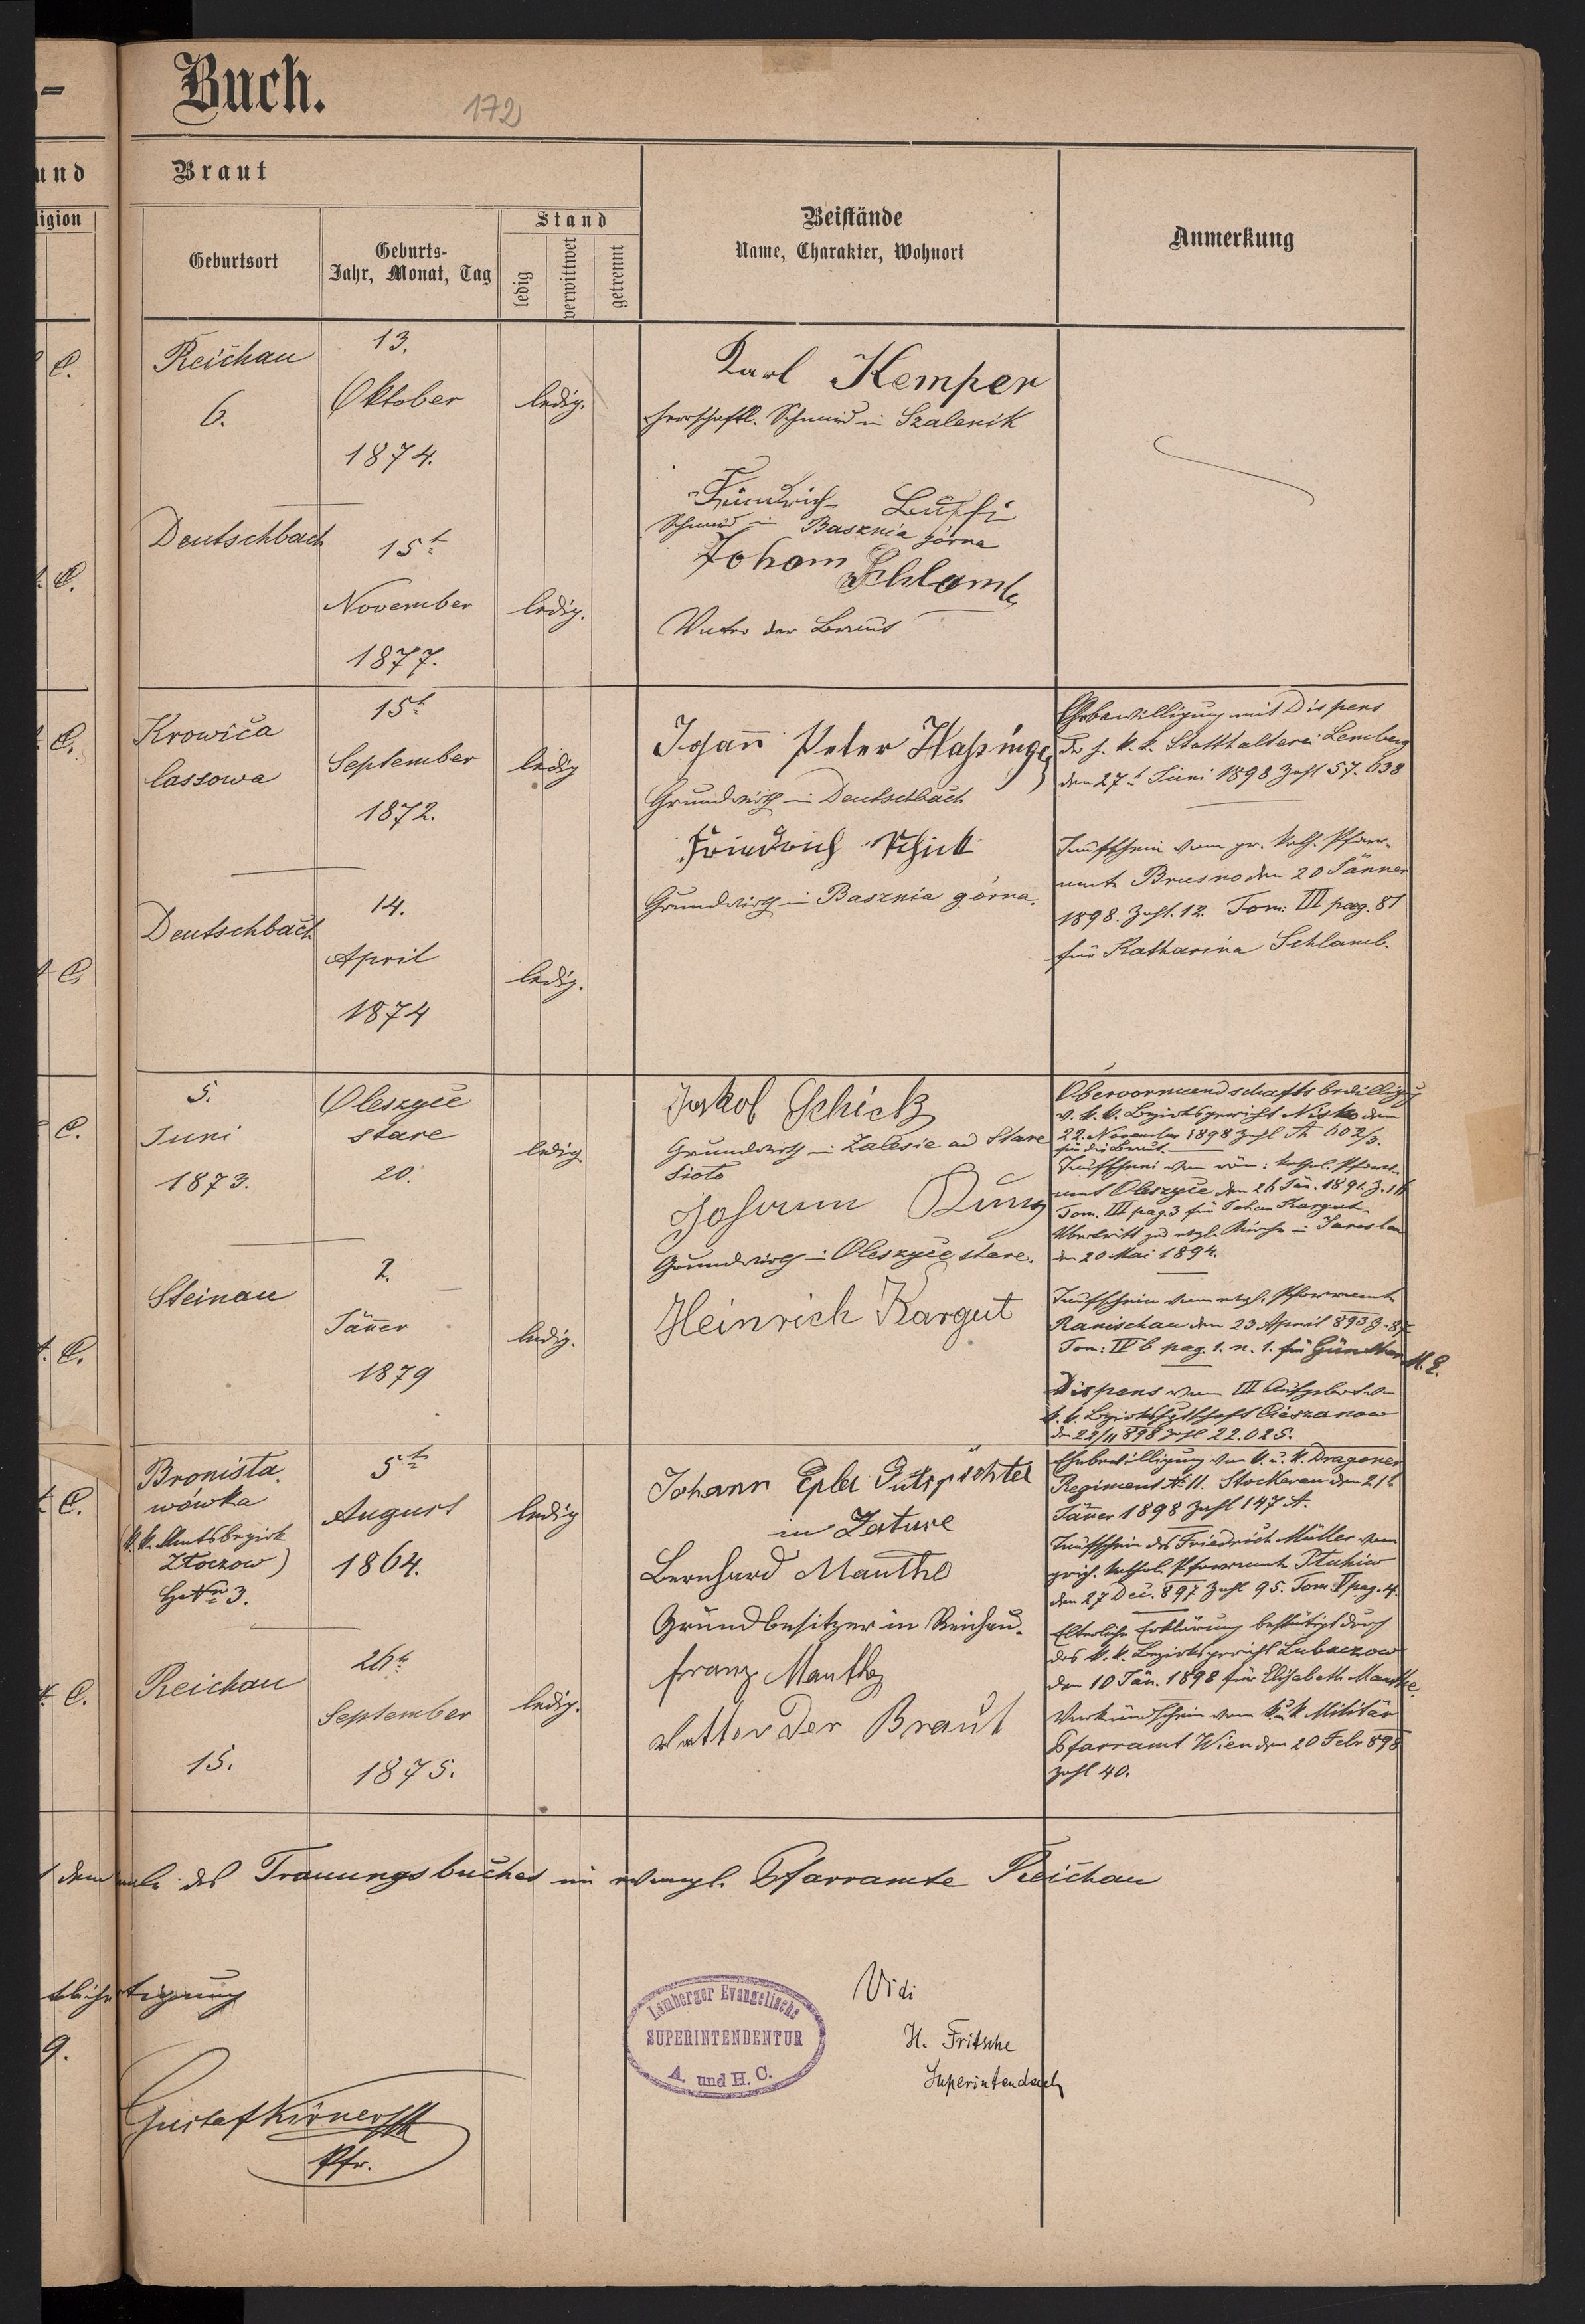 Buch.
172
und
Braut
ligion
Geburtsort
Geburts-
Jahr, Monat, Tag
Stand
ledig
verwittwet
getrennt
Beistände
Name, Charakter, Wohnort
Anmerkung
C.
Reichau
6.
13.
Oktober
1874.
ledig.
Karl Kemper
herrschaftl. Schmid in Szalenik
C.
Deutschbach
15t
November
1877.
ledig.
Schmid in Basznia górna
Johann Schlamb
Vater der Braut
C.
Krowica
lassowa
15t
September
1872.
ledig
Johann Peter Haßinger
Grundwirth in Deutschbach
Friedrich Schick
Grundwirth in Basznia górna.
Ehebewilligung mit Dispens
der h. k. k. Statthalterei Lemberg
den 27t Juni 1898 Zahl 57.638
Taufschein vom gr. kath. Pfarr-
amte Brusno den 20 Jänner
1898. Zahl. 12. Tom: III pag. 81
für Katharina Schlamb.
C.
Deutschbach
14.
April
1874
ledig.
C.
5.
Juni
1873.
Oleszyce
stare
20.
ledig.
Jakob Schick
Grundwirth in Zalesie ad Stare
sioło
Johann Kung
Grundwirth in Oleszyce stare.
Heinrich Kargut
Obervormundschaftsbewilligung
v. k. k. Bezirksgericht Nisko den
22. November 1898 Zahl A 602/3.
für die Braut.
Taufschein vom röm: kathol. Pfarr-
amt Oleszyce den 26 Jän. 1891. Z.
Tom. III pag. 3 für Johan Kargut.
Übertritt zur evgl. Kirche in Jaroslau
den 20 Mai 1894.
C.
Steinau
2.
Jänner
1879
ledig.
Taufschein vom evgl. Pfarramte
Ranischau den 23 April 893 Z. 87
Tom: IV b pag. 1. n. 1. für Günther M. E.
Dispens vom III Aufgebot von
k. k. Bezirkshptschaft Cieszanow
den 22/11 898 Zahl 22.025.
C.
Bronisła.
wówka
k. k. Amtsbezirk
Złoczow)
HsNro 3.
5t
August
1864.
ledig
Johann Epler Gutspächter
in Zature
Bernhard Manthe
Grundbesitzer in Reichau.
Franz Manthey
Vatter der Braut
Ehebewilligung vom k. u. k. Dragoner
Regiment No 11. Stockerau den 21t
Jänner 1898 Zahl 147 A.
Taufschein des Friedrich Müller vom
griech. kathol. Pfarramte Płuhiw
den 27 Dec. 897 Zahl 95. Tom: V pag. 4.
Elterliche Erklärung bestätigt durch
das k. k. Bezirksgericht Lubaczow
den 10 Jän. 1898 für Elisabeth Manthe.
Verkündschein vom k. u. k. Militär
Pfarramt Wien den 20 Febr 898
Zahl 40.
C.
Reichau
15.
26t
September
1875.
ledig.
des Trauungsbuches im evangl. Pfarramte Reichau
9.
Gustaf Kirner
Pfr.
Lemberger Evangelische
SUPERINTENDENTUR
A. und H. C.
Vidi
H. Fritsche
Superintendent